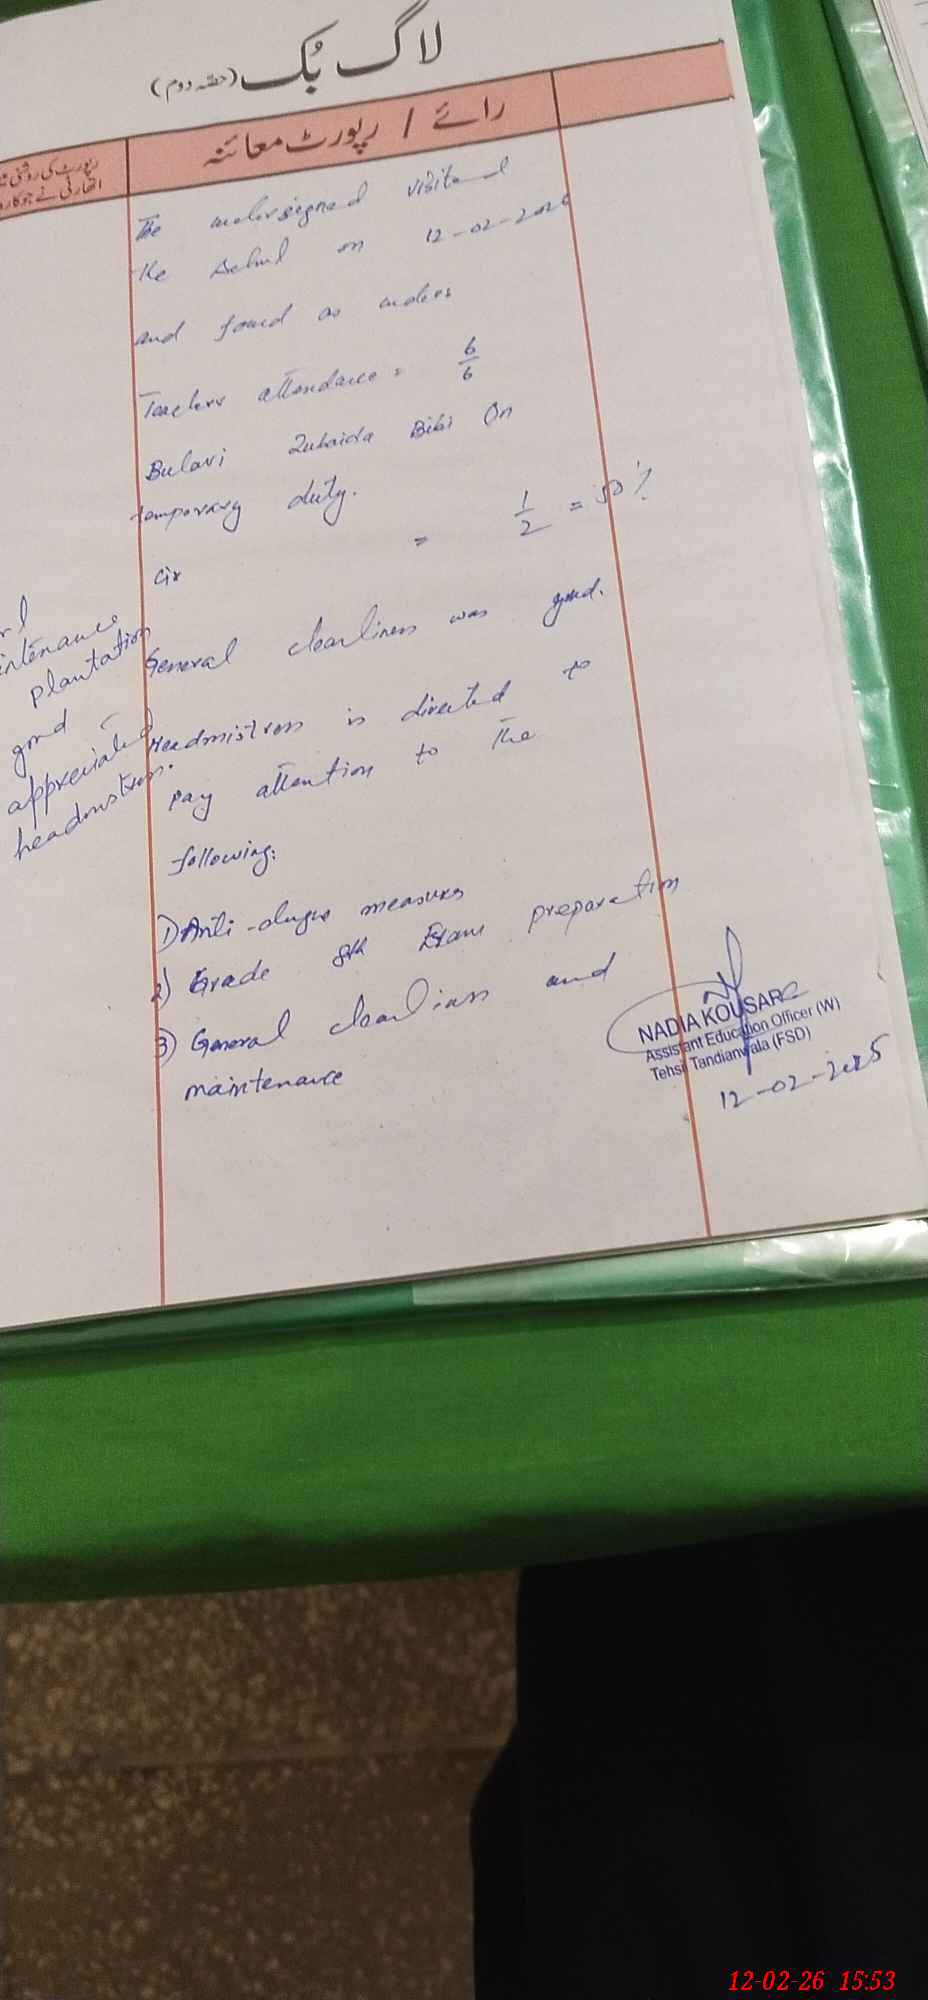 لاگ بُک (حصّہ دوم)
رائے / رپورٹ معائنہ
رپورٹ کی روشنی
اتھارٹی نے جو
The undersigned visited
the school on 12-02-202
and found as under:
Teachers attendance = 6/6
Bulavi Zubaida Bibi On
temporary duty.
Civ = 1/2 = 50%
General cleanliness was good.
Headmistress is directed to
pay attention to the
following:
1) Anti-dengue measures
2) Grade 8th Exam preparation
3) General cleanliness and
maintenance
intenance
plantation
good
appreciated
headmistress.
NADIA KOUSAR
Assistant Education Officer (W)
Tehsil Tandianwala (FSD)
12-02-2025
12-02-26 15:53